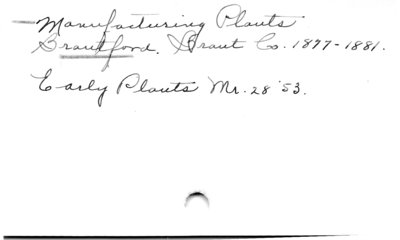 Manufacturing Plants
Brantford. Brant Co. 1877-1881.
Early Plants Mr. 28 '53.